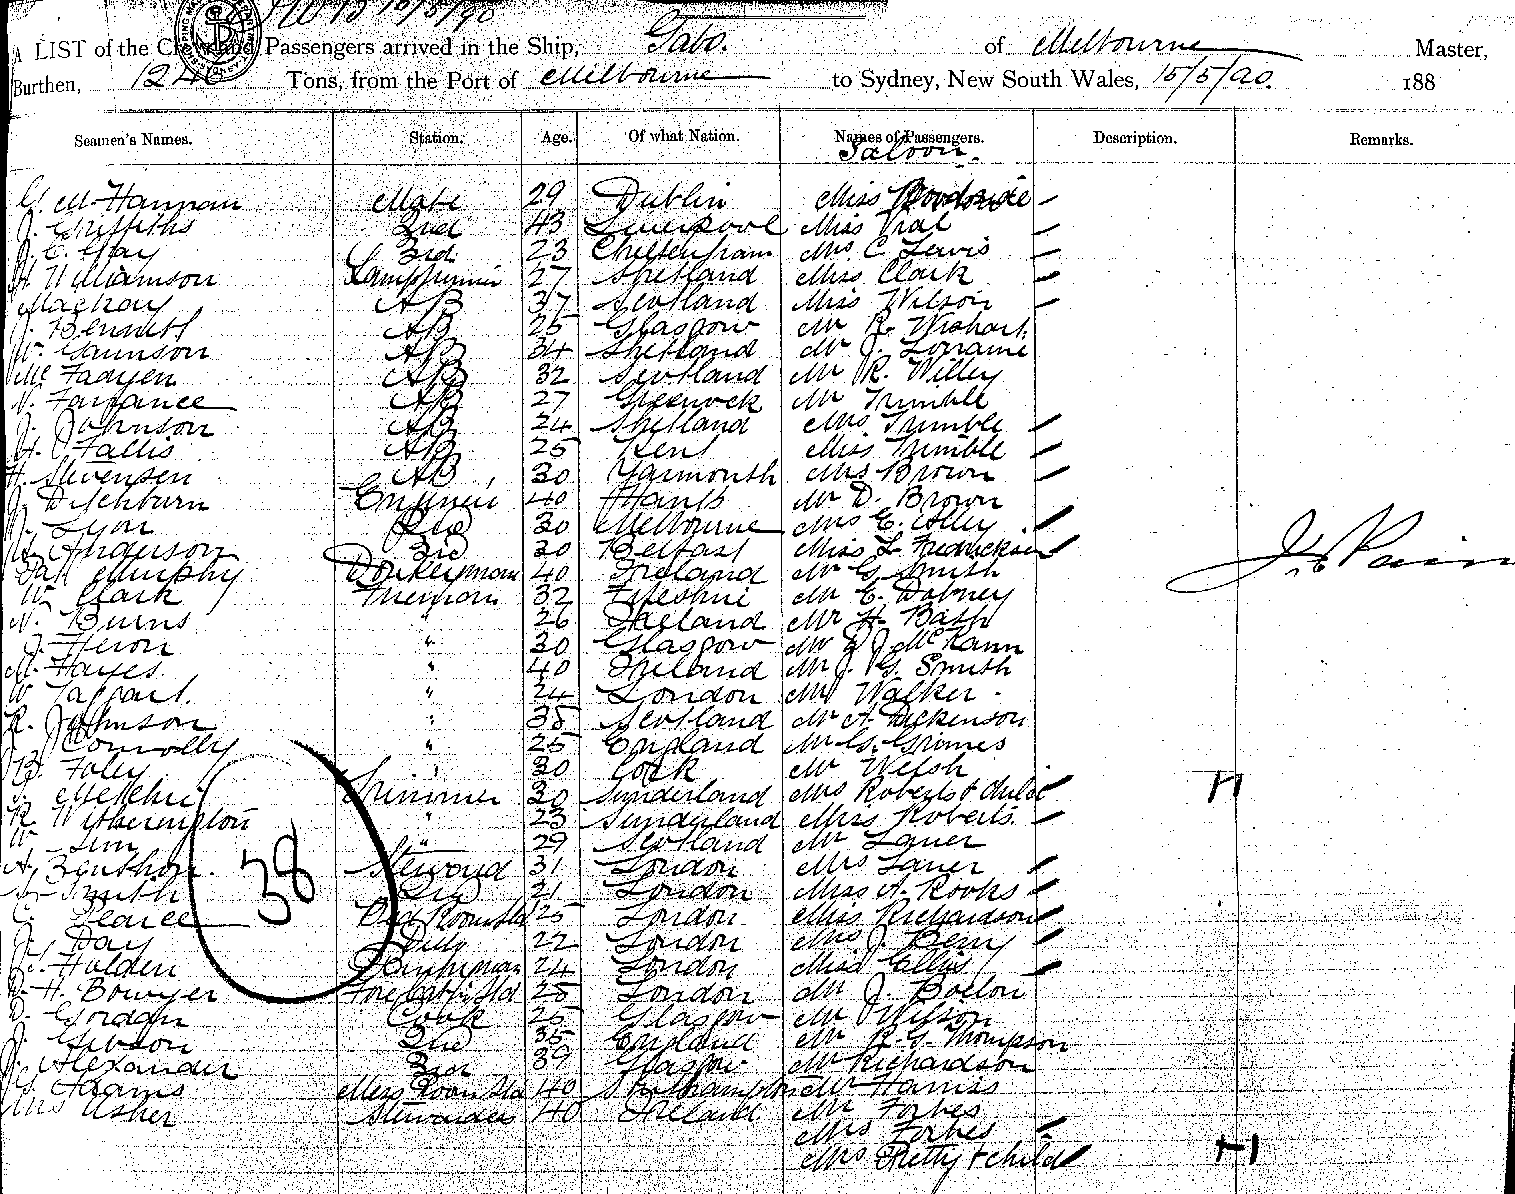 A LIST of the Crew and Passengers arrived in the Ship, Gabo. of Melbourne Master,
Burthen, 1240 Tons, from the Port of Melbourne to Sydney, New South Wales, 15/5/90. 188
Seamen's Names. Station. Age. Of what Nation. Names of Passengers. Description. Remarks.
Saloon.
Hannan Mate 29 Dublin Miss Woodside
J. Griffiths 2nd 43 Liverpool Miss Vial
J. C. Gay 3rd 23 Cheltenham Mrs C. Lewis
H Williamson Lamptrimmer 27 Shetland Miss Clark
Mackay AB 37 Scotland Miss Wilson
J. Bennett AB 25 Glasgow Mr R. Wishart
W. Gaunson AB 34 Shetland Mr J. Lorraine
Mc Fadyen AB 32 Scotland Mr R. Willey
Farrance AB 27 Greenock Mr Trimble
J. Johnson AB 24 Shetland Mrs Trimble
H. Fallis AB 25 Kent Miss Trimble
H. Stevensen AB 30 Yarmouth Mrs Brown
J. Ditchburn Engineer 40 Hants Mr D. Brown
J. Lyon 2nd 30 Melbourne Mrs C.
A. Anderson 3rd 30 Belfast Miss L. Fredricksen
Pat Murphy Donkeyman 40 Ireland Mr G. Smith
W. Clark Fireman 32 Fifeshire Mr C. Dabney
N. Burns " 26 Ireland Mr H. Bath
J. Heron " 30 Glasgow Mr D. J. McKann
M. Hayes " 40 Ireland Mr J. G. Smith
W. Taggart. " 24 London Mr Walker
R. Johnson " 38 Scotland Mr A. Dickenson
J. Connolly " 25 England Mr G. Grimes
B. Foley " 30 Cork Mr Welsh
Trimmer 30 Sunderland Mrs Roberts & child
R Witherington " 23 Sunderland Miss Roberts.
W. Sim " 29 Scotland Mr Laner
A. Benthon. Steward 31 London Mrs Laner
Smith 2nd 21 London Miss A. Rooks
C. Pearce Bed Room Std 25 London Miss Richardson
J. Day Ditto 22 London Mrs J. Berry
Holden Pantryman 24 London Miss Ellis
H. Bowyer Fore Cabin Std 25 London Mr J. Boelon
D. Gordon Cook 25 Glasgow Mr Wilson
J. Gibson 2nd 35 England Mr R. G. Thompson
J. Alexander 3rd 39 Glasgow Mr Richardson
Adams Mess Room Std 40 Southampton Mr Harris
Mrs Asher Stewardess 40 Ireland Mr Forbes
Mrs Forbes
Mrs Pretty & child
38